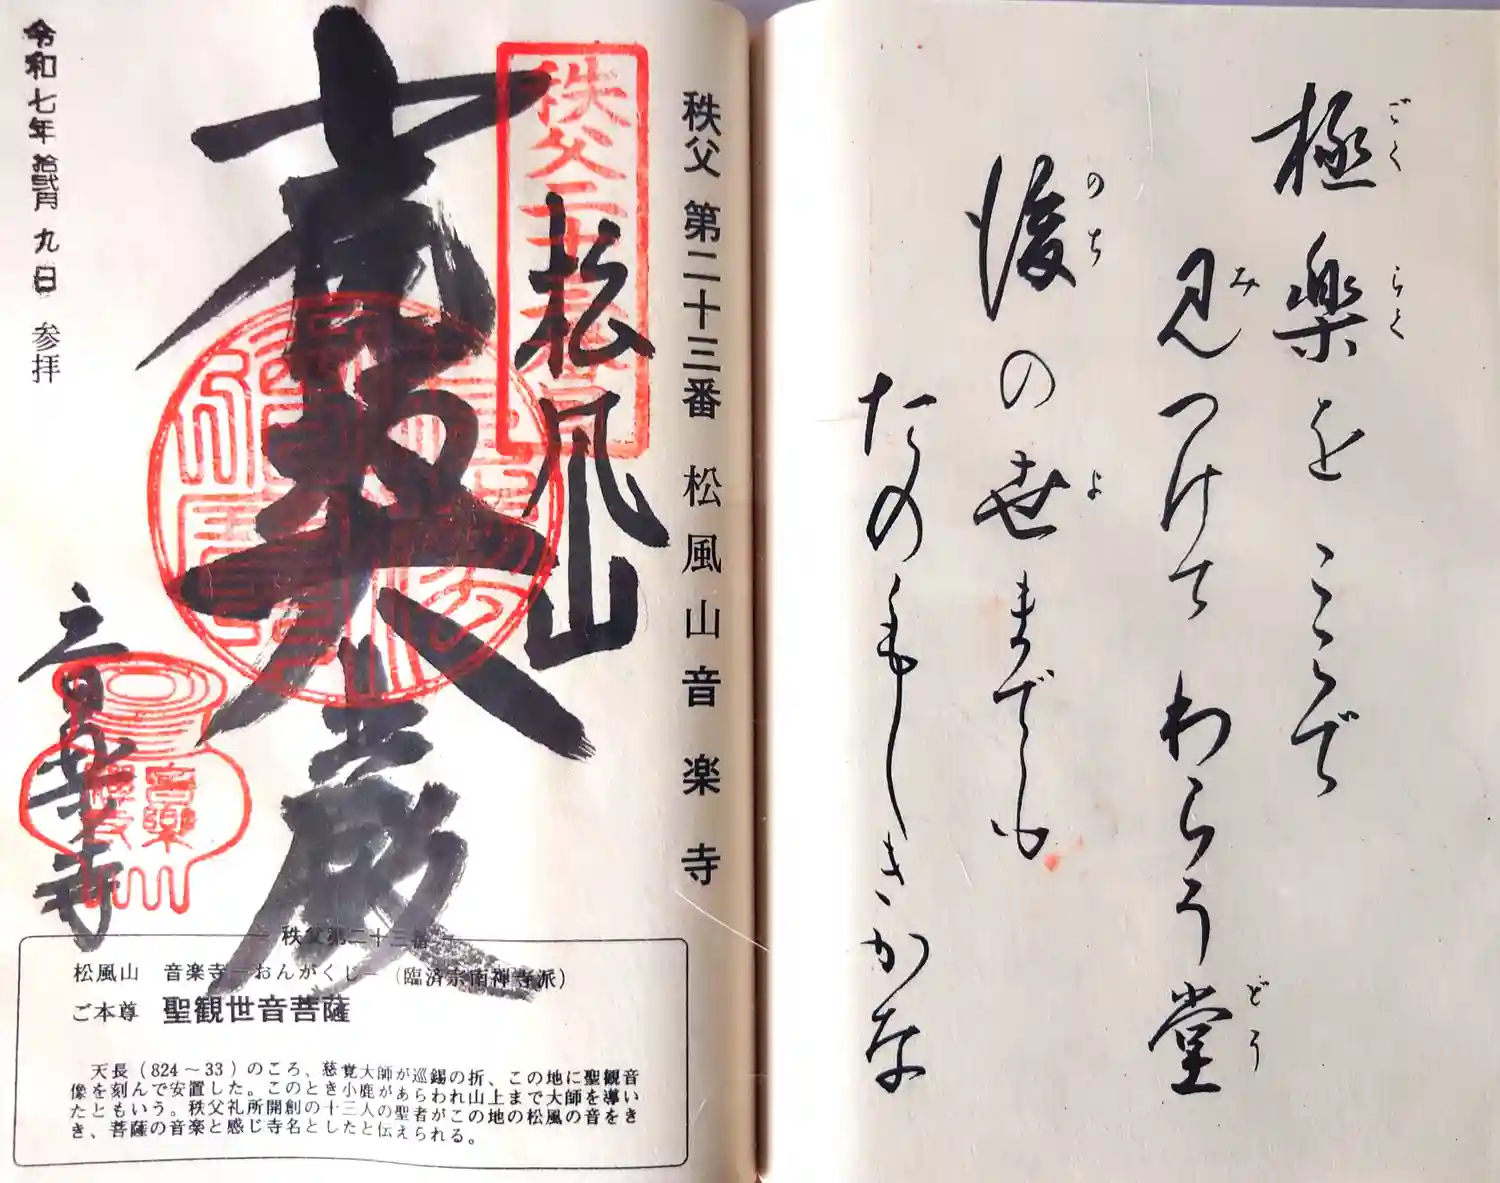 極楽をここで
ごくらく
見つけてわらう堂
み
どう
後の世までも
のち
よ
たのもしきかな
秩父 第二十三番 松風山音楽寺
松風山
音楽寺
令和七年拾弐月九日 参拝
秩父第二十三番
松風山 音楽寺―おんがくじ―(臨済宗南禅寺派)
ご本尊 聖観世音菩薩
天長(824～33)のころ、慈覚大師が巡錫の折、この地に聖観音
像を刻んで安置した。このとき小鹿があらわれ山上まで大師を導い
たともいう。秩父礼所開創の十三人の聖者がこの地の松風の音をき
き、菩薩の音楽と感じ寺名としたと伝えられる。